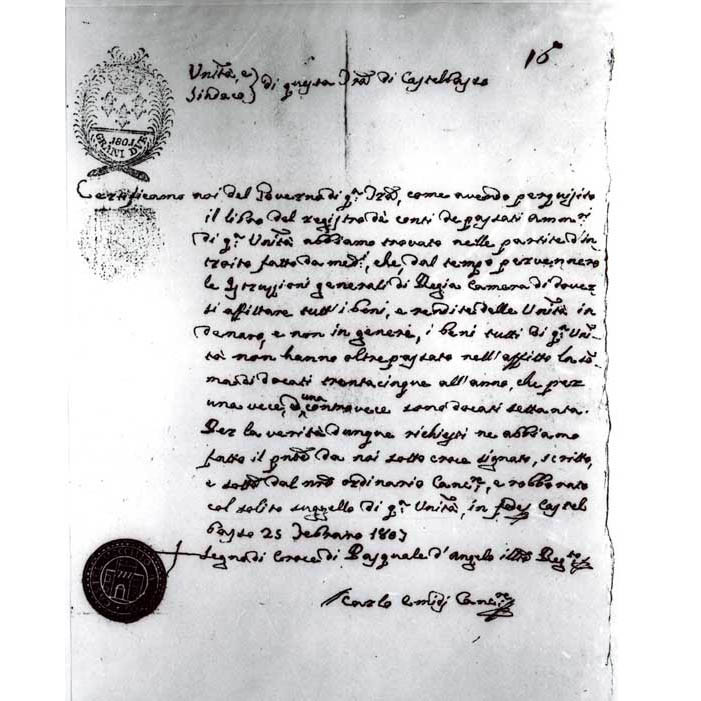 16
Unità, e
Sindaco } di questa Trã di Castelbasso
1801
GRANI DUE
Certificamo noi del Governo di q.ª Trã, come avendo perquisito
il libro del registro dè conti de passati amm.ri
di q.ª Unità abbiamo trovato nelle partite d'in
troito fatto da med.i, che, dal tempo pervennero
le Istruzzioni generali di Regia Camera di dover
si affittare tutt'i beni, e rendite delle Unità in
denaro, e non in genere, i beni tutti di q.ª Uni
tà non hanno oltre passato nell'affitto la so
ma di docati trentacinque all'anno, che per
una vece, di una controvece sono docati settanta.
Per la verità dunque richiesti ne abbiamo
fatto il pñte da noi sotto croce signato, scritto,
e sottõ dal nrõ ordinario Canc.re, e robborato
col solito suggello di q.ª Unità, in fede Castel
basso 25 Febraro 1807
Segno di Croce di Pasquale d'Angelo
Carlo Canc.re